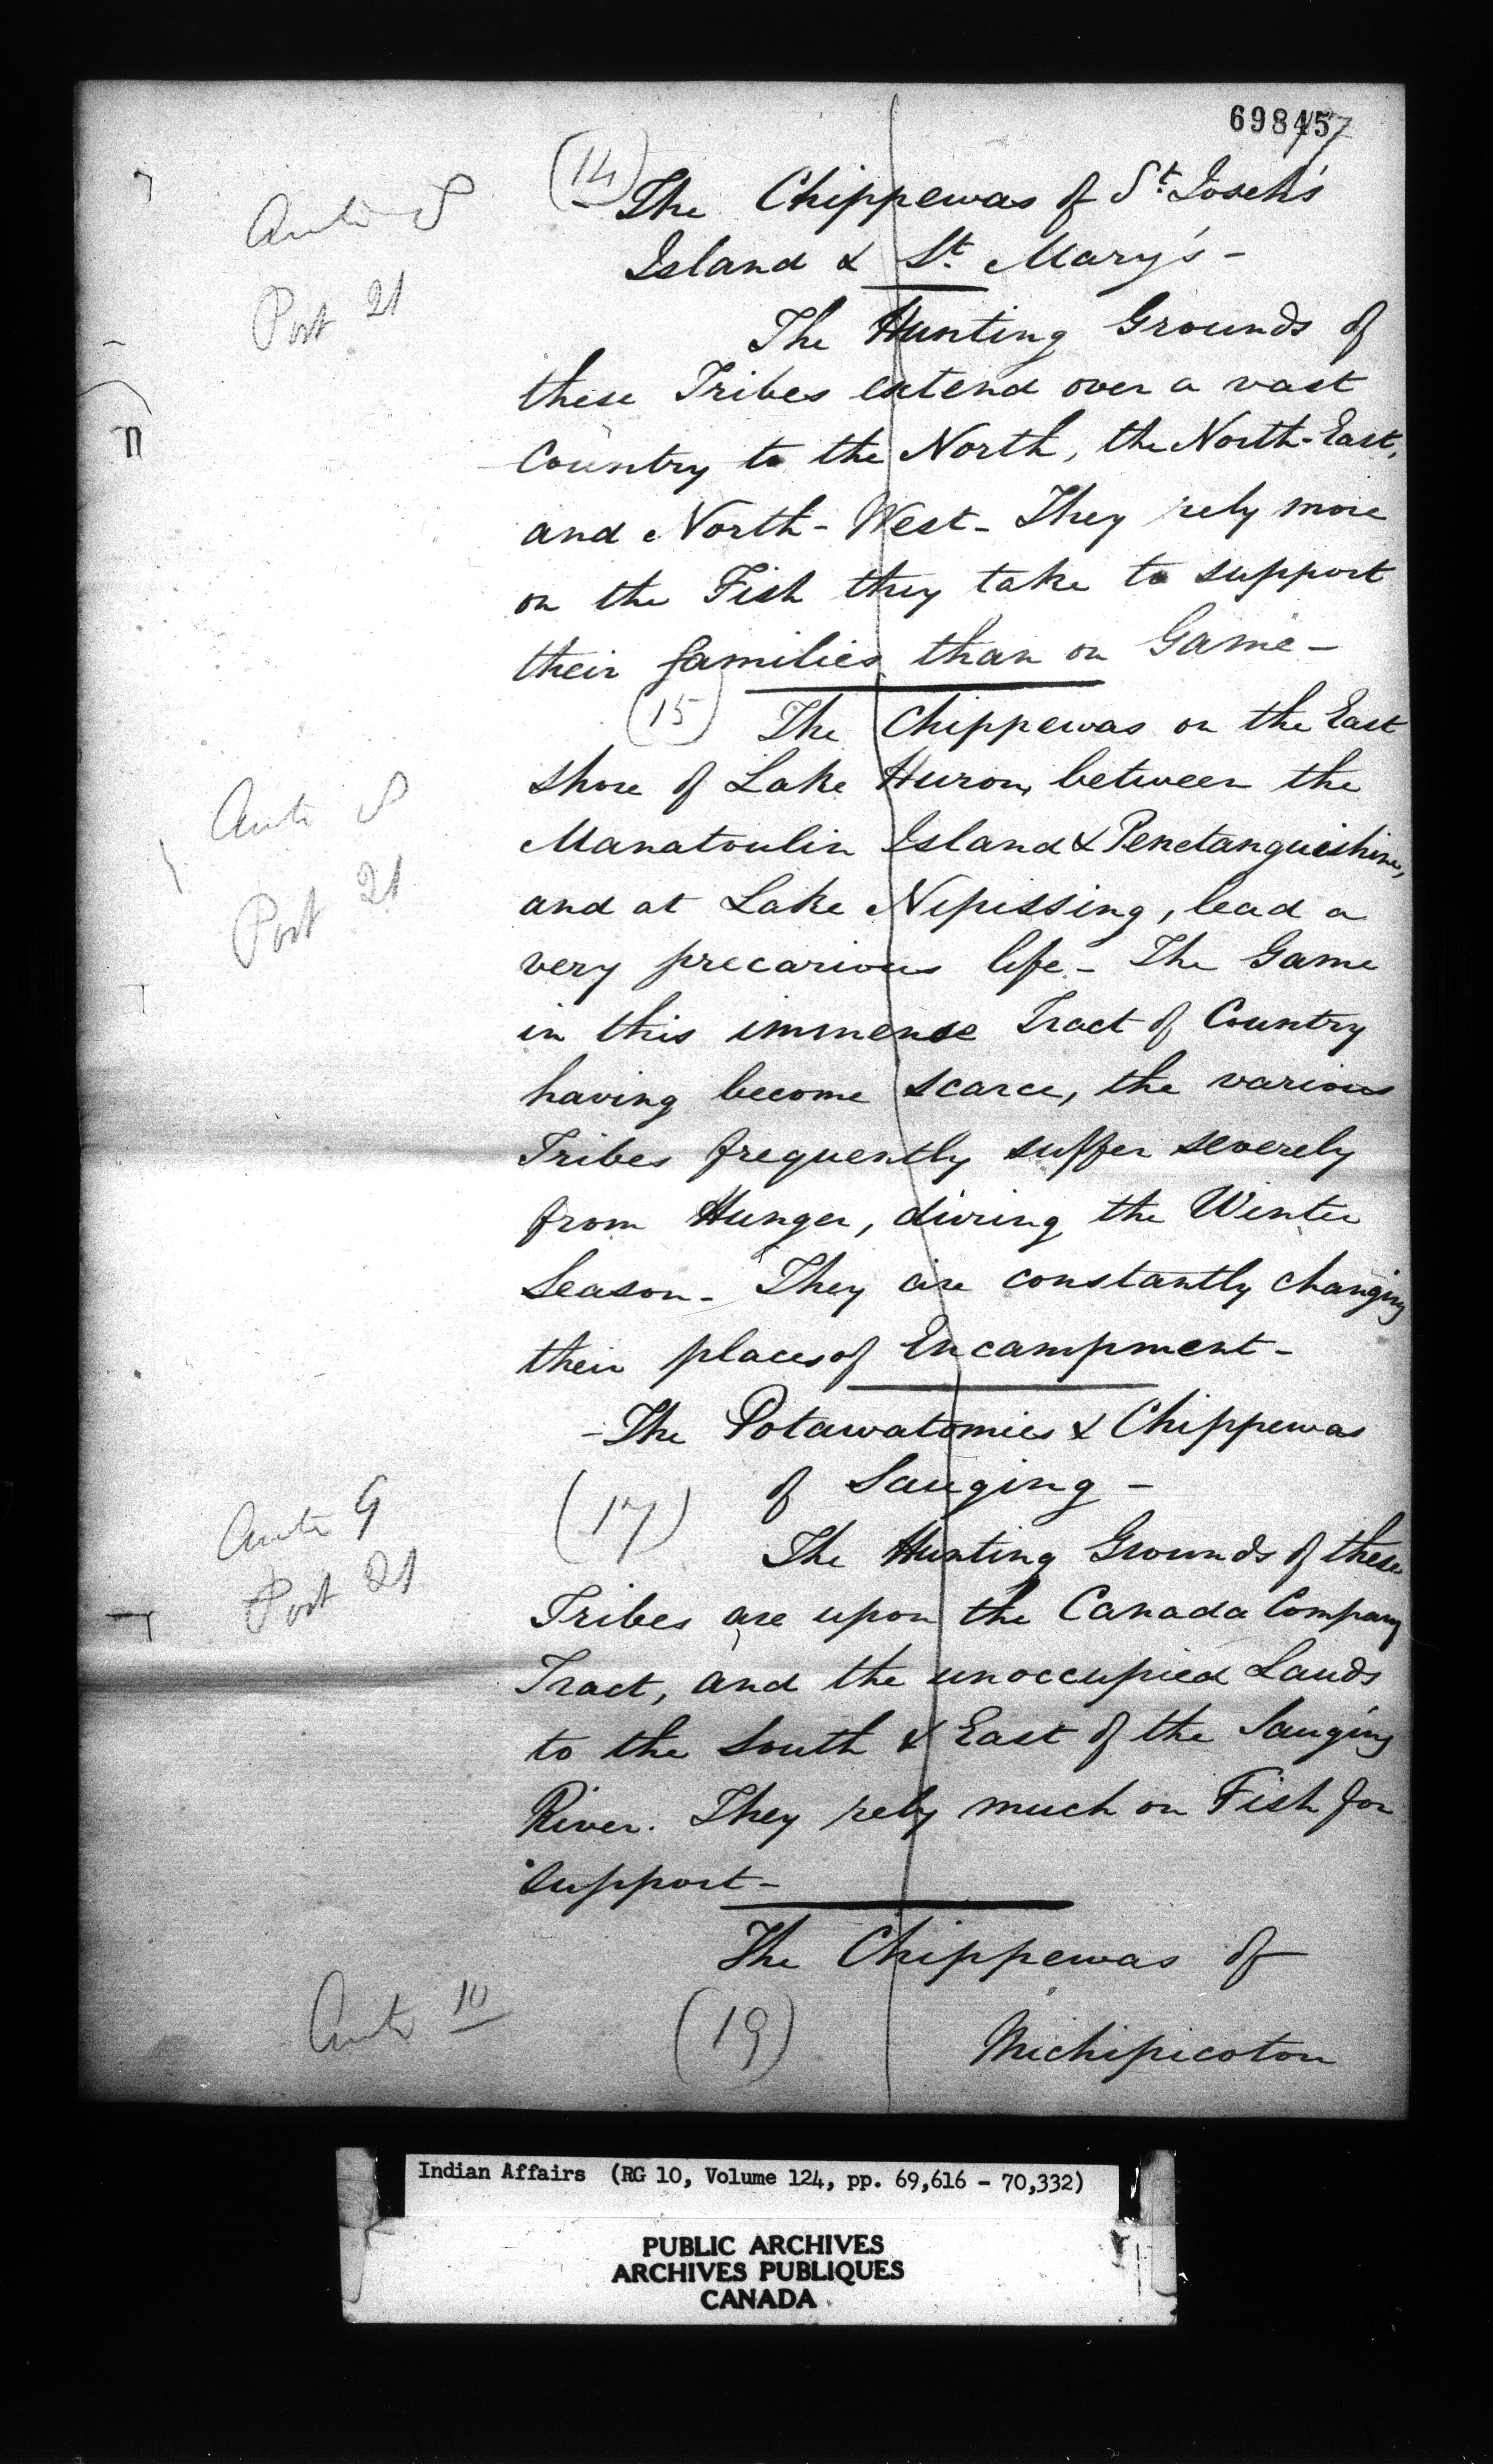 69845
57
(14) - The Chippewas of St. Joseh's
Ante 8
Island & St. Mary's -
Post 21
The Hunting Grounds of
these Tribes extend over a vast
Country to the North, the North-East,
and North-West - They rely more
on the Fish they take to support
their families than on Game -
(15) The Chippewas on the East
shore of Lake Huron, between the
Ante 8
Manatoulin Island & Penetanguishine,
Post 21
and at Lake Nipissing, lead a
very precarious life - The Game
in this immense Tract of Country
having become scarce, the various
Tribes frequently suffer severely
from Hunger, during the Winter
Season - They are constantly changing
their places of Encampment -
- The Potawatomies & Chippewas
of Sauging -
Ante 9
(17)
The Hunting Grounds of these
Post 21
Tribes are upon the Canada Company
Tract, and the unoccupied Lands
to the South & East of the Sauging
River. They rely much on Fish for
support -
The Chippewas of
Ante 10
(19)
Michipicoton
Indian Affairs (RG 10, Volume 124, pp. 69,616 - 70,332)
PUBLIC ARCHIVES
ARCHIVES PUBLIQUES
CANADA